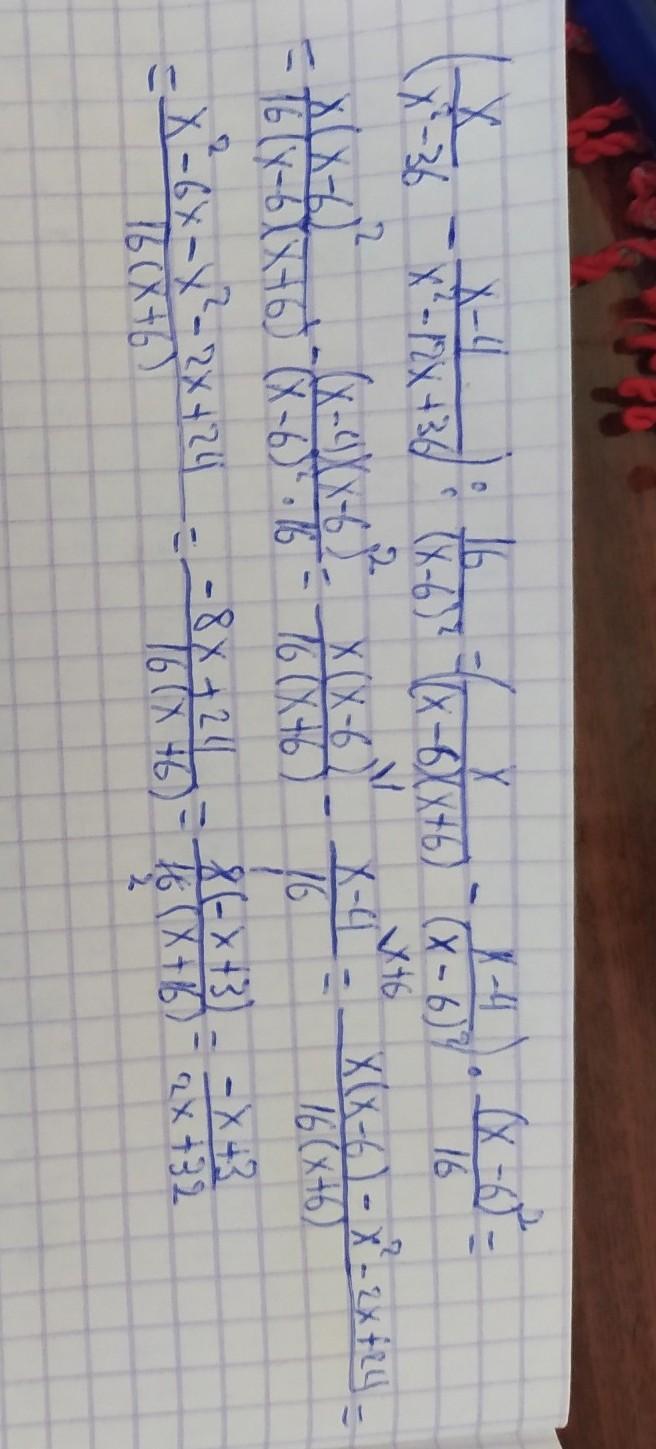 (x/(x²-36) - (x-4)/(x²-12x+36)) : 16/(x-6)² = (x/((x-6)(x+6)) - (x-4)/(x-6)²) · (x-6)²/16 =
= x(x-6)²/(16(x-6)(x+6)) - (x-4)(x-6)²/((x-6)²·16) = x(x-6)/(16(x+6)) - (x-4)/16 \x+6 = (x(x-6)-x²-2x+24)/(16(x+6)) =
= (x²-6x-x²-2x+24)/(16(x+6)) = (-8x+24)/(16(x+6)) = 8(-x+3)/(16(x+16)) = (-x+3)/(2x+32)
1
2